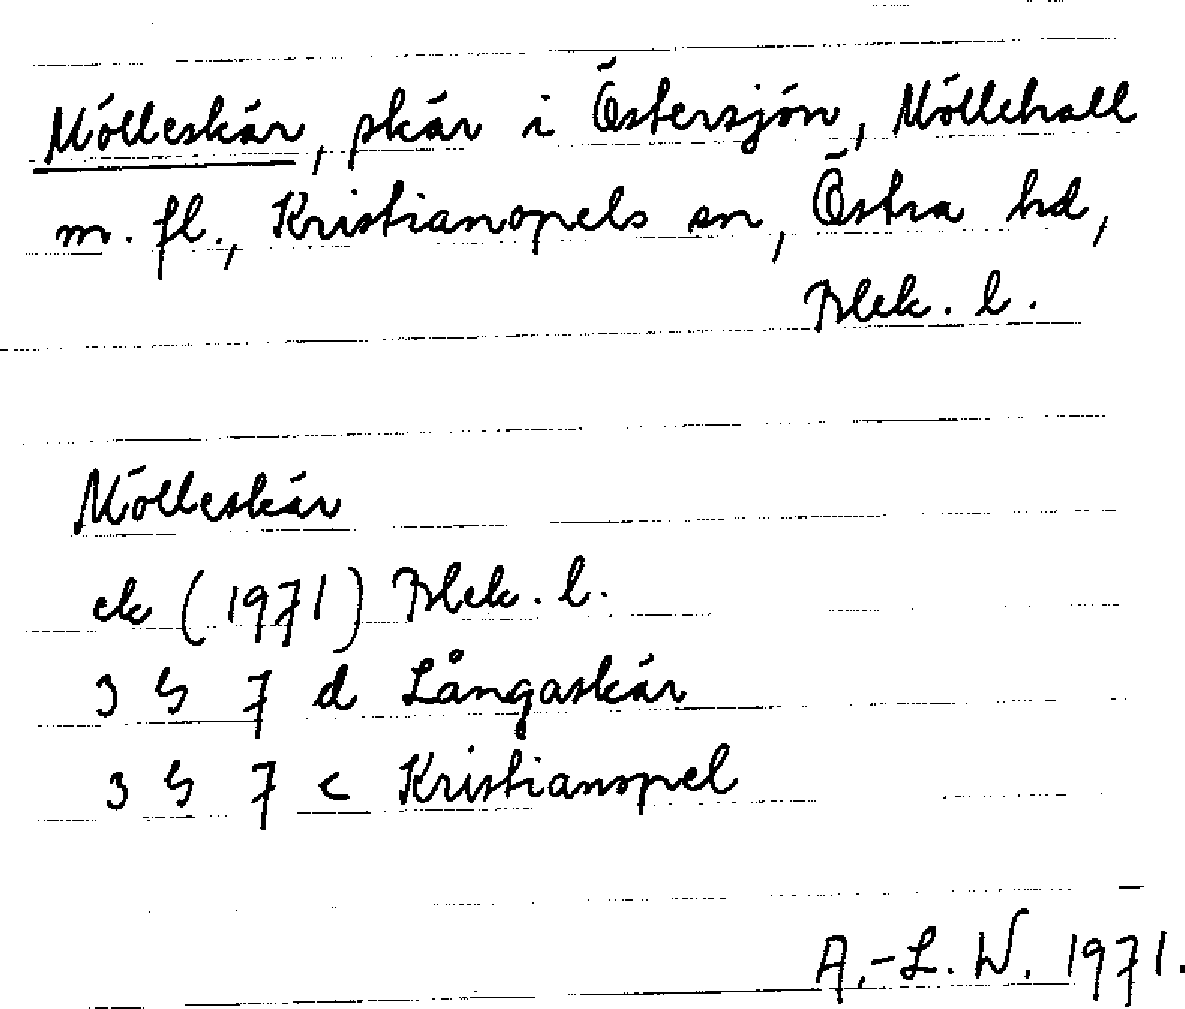 Mölleskär, skär i Östersjön, Möllehall
m. fl., Kristianopels sn, Östra hd,
Blek. l.
Mölleskär
ek (1971) Blek. l.
3 G 7 d Långaskär
3 G 7 c Kristianopel
A.-L. W. 1971.